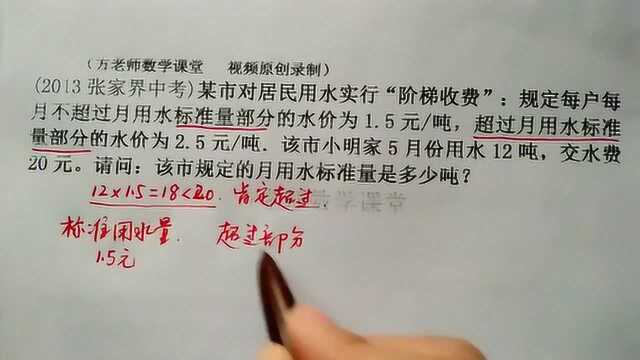 (方老师数学课堂 视频原创录制)
(2013 张家界中考)某市对居民用水实行“阶梯收费”:规定每户每
月不超过月用水标准量部分的水价为 1.5 元/吨,超过月用水标准
量部分的水价为 2.5 元/吨．该市小明家 5 月份用水 12 吨,交水费
20 元。请问:该市规定的月用水标准量是多少吨?
12×1.5=18<20. 肯定超过.
数学课堂
标准用水量. 超过部分
1.5元